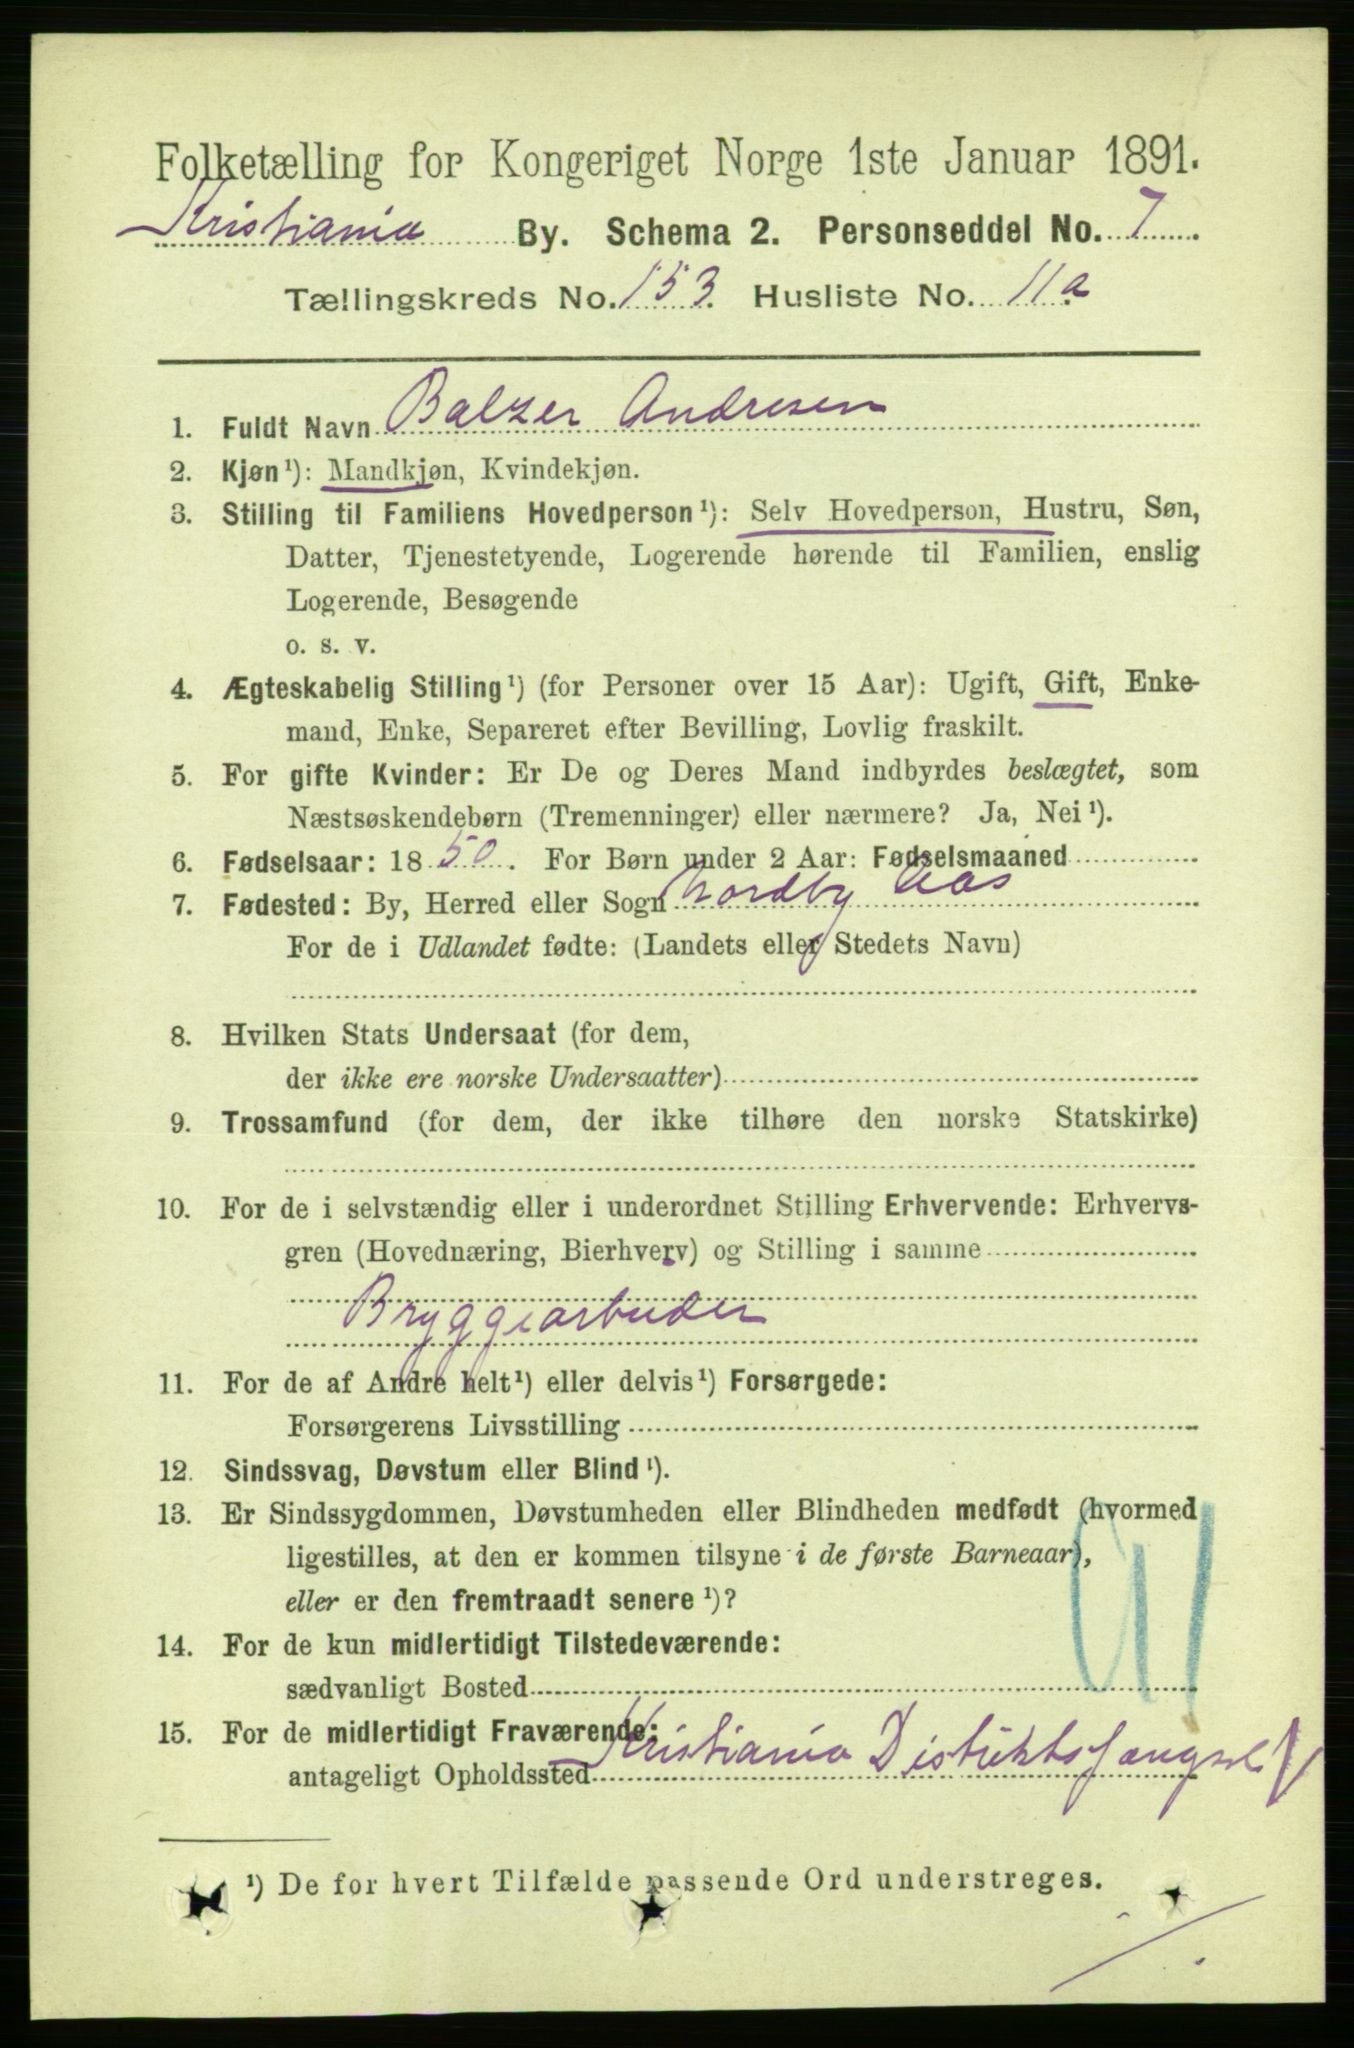 Folketælling for Kongeriget Norge 1ste Januar 1891.
Kristiania By. Schema 2. Personseddel No. 7
Tællingskreds No. 153. Husliste No. 11a
1. Fuldt Navn Balzer Andresen
2. Kjøn¹): Mandkjøn, Kvindekjøn.
3. Stilling til Familiens Hovedperson¹): Selv Hovedperson, Hustru, Søn,
Datter, Tjenestetyende, Logerende hørende til Familien, enslig
Logerende, Besøgende
o. s. v.
4. Ægteskabelig Stilling¹) (for Personer over 15 Aar): Ugift, Gift, Enke-
mand, Enke, Separeret efter Bevilling, Lovlig fraskilt.
5. For gifte Kvinder: Er De og Deres Mand indbyrdes beslægtet, som
Næstsøskendebørn (Tremenninger) eller nærmere? Ja, Nei¹).
6. Fødselsaar: 1850. For Børn under 2 Aar: Fødselsmaaned
7. Fødested: By, Herred eller Sogn Nordby Aas
For de i Udlandet fødte: (Landets eller Stedets Navn)
8. Hvilken Stats Undersaat (for dem,
der ikke ere norske Undersaatter)
9. Trossamfund (for dem, der ikke tilhøre den norske Statskirke)
10. For de i selvstændig eller i underordnet Stilling Erhvervende: Erhvervs-
gren (Hovednæring, Bierhverv) og Stilling i samme
Bryggearbeider
11. For de af Andre helt¹) eller delvis¹) Forsørgede:
Forsørgerens Livsstilling
12. Sindssvag, Døvstum eller Blind¹).
13. Er Sindssygdommen, Døvstumheden eller Blindheden medfødt (hvormed
ligestilles, at den er kommen tilsyne i de første Barneaar),
eller er den fremtraadt senere¹)?
14. For de kun midlertidigt Tilstedeværende:
sædvanligt Bosted
15. For de midlertidigt Fraværende:
antageligt Opholdssted Kristiania Distriktsfængsel
¹) De for hvert Tilfælde passende Ord understreges.